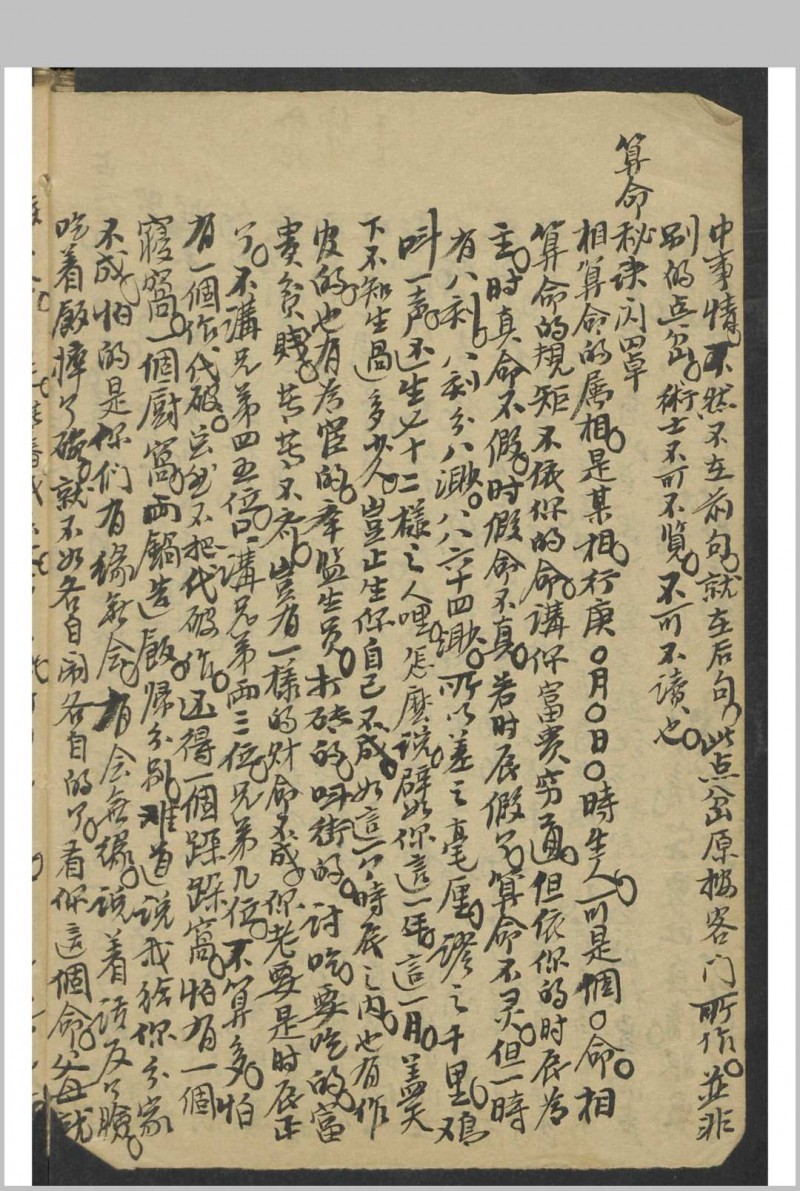 中事情。不然。不在前句。就在后句。此点岔原授客门所作。並非
别的点岔。術士不可不覧。不可不读也。
算命秘诀闪四章
相算命的属相。是某相。行庚〇月〇日〇時生人。可是個〇命。相
算命的規矩不依你的命。講你富贵穷通。但依你的时辰为
主。时真命不假。时假命不真。若时辰假了。算命不灵。但一時
有八刻。八刻分八渺。八八六十四渺。所以差之毫厘。謬之千里。鸡
叫一声。还生七十二樣之人哩。怎麽说。譬如你這一年。這一月。盖天
下不知生過多少人。豈止生你自己不成。如這一个時辰之内。也有作
皮的。也有为官的。舉监生员。打砖的。叫街的。讨吃要吃的。富
贵贫賤。苦苦不齐。豈有一樣的财命不成。你老要是时辰正
了。不講兄弟四五位。只講兄弟两三位。兄弟几位。不算多。怕
有一個作代破。总然不把代破作。还得一個跺跺窩。怕有一個
寝窩。一個厨窩。两鍋造飯。歸分别。难道说我给你分家
不成。怕的是你们有缘無会。有会無缘。说着话反了臉。
吃着飯摔了碗。就不如各自闹各自的了。看你這個命。父母就